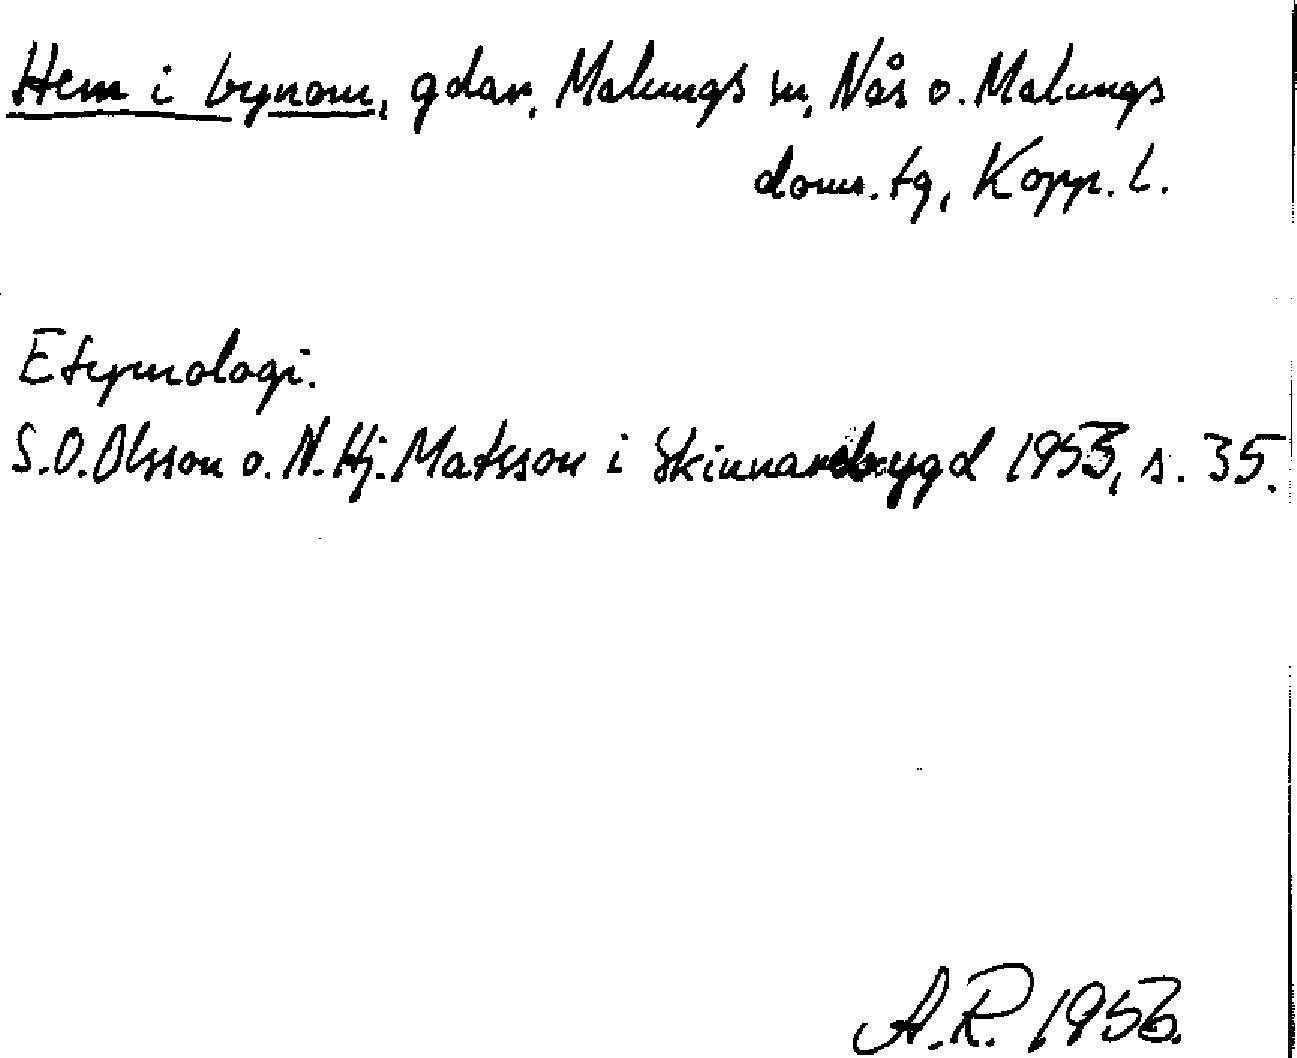 Hem i bynom, gdar, Malungs sn, Nås o. Malungs
doms. tg, Kopp. l.
Etymologi.
S.O. Olsson o. N. Hj. Matsson i Skinnarebygd 1953, s. 35.
A.R. 1953.